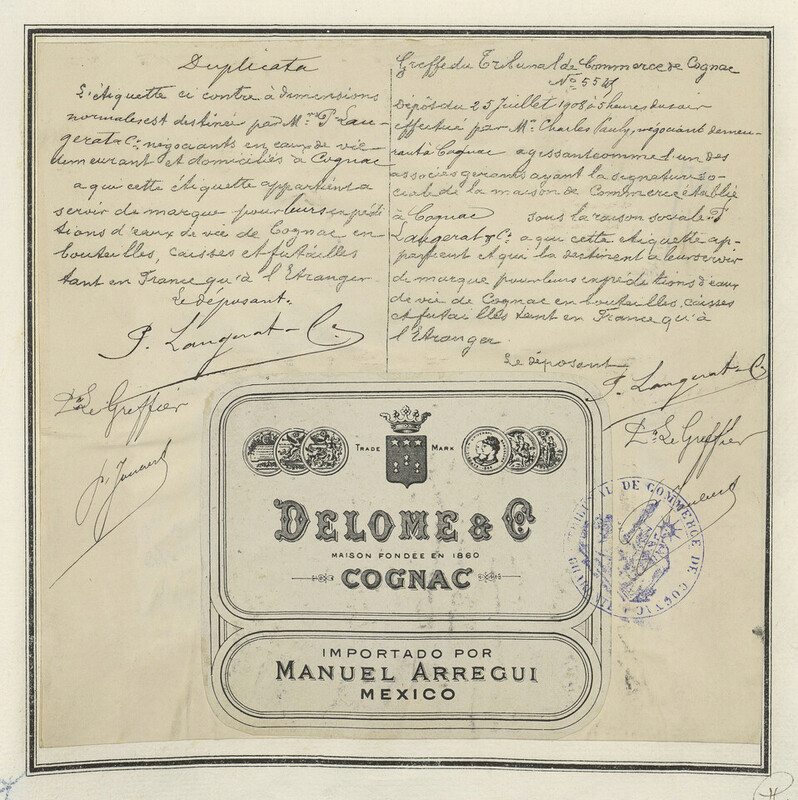 Duplicata
L'étiquette ci contre à dimensions
normales est destinée par Mrs P. Lan-
gerat & Co négociants en eaux de vie
demeurant et domiciliés à Cognac
a qui cette étiquette appartient a
servir de marque pour leurs expédi
tions d'eaux de vie de Cognac en
bouteilles, caisses et futailles
tant en France qu'à l'Etranger
Le déposant.
P. Langerat & Co
Pr Le Greffier
Greffe du Tribunal de Commerce de Cognac
Dépôt du 25 Juillet 1908 à 5 heures du soir
effectué par Mr Charles Pauly, négociant demeu-
rant à Cognac agissant comme l'un des
associés gérants ayant la signature so-
ciale de la maison de Commerce établie
à Cognac sous la raison sociale P.
Langerat & Co a qui cette étiquette ap-
partient et qui la destinent a leur servir
de marque pour leurs expéditions d'eaux
de vie de Cognac en bouteilles, caisses
et futailles tant en France qu'à
l'Etranger.
Le déposant
P. Langerat & Co
Pr Le Greffier
TRIBUNAL DE COMMERCE DE COGNAC
TRADE MARK
DELOME & Co
MAISON FONDÉE EN 1860
COGNAC
IMPORTADO POR
MANUEL ARREGUI
MEXICO